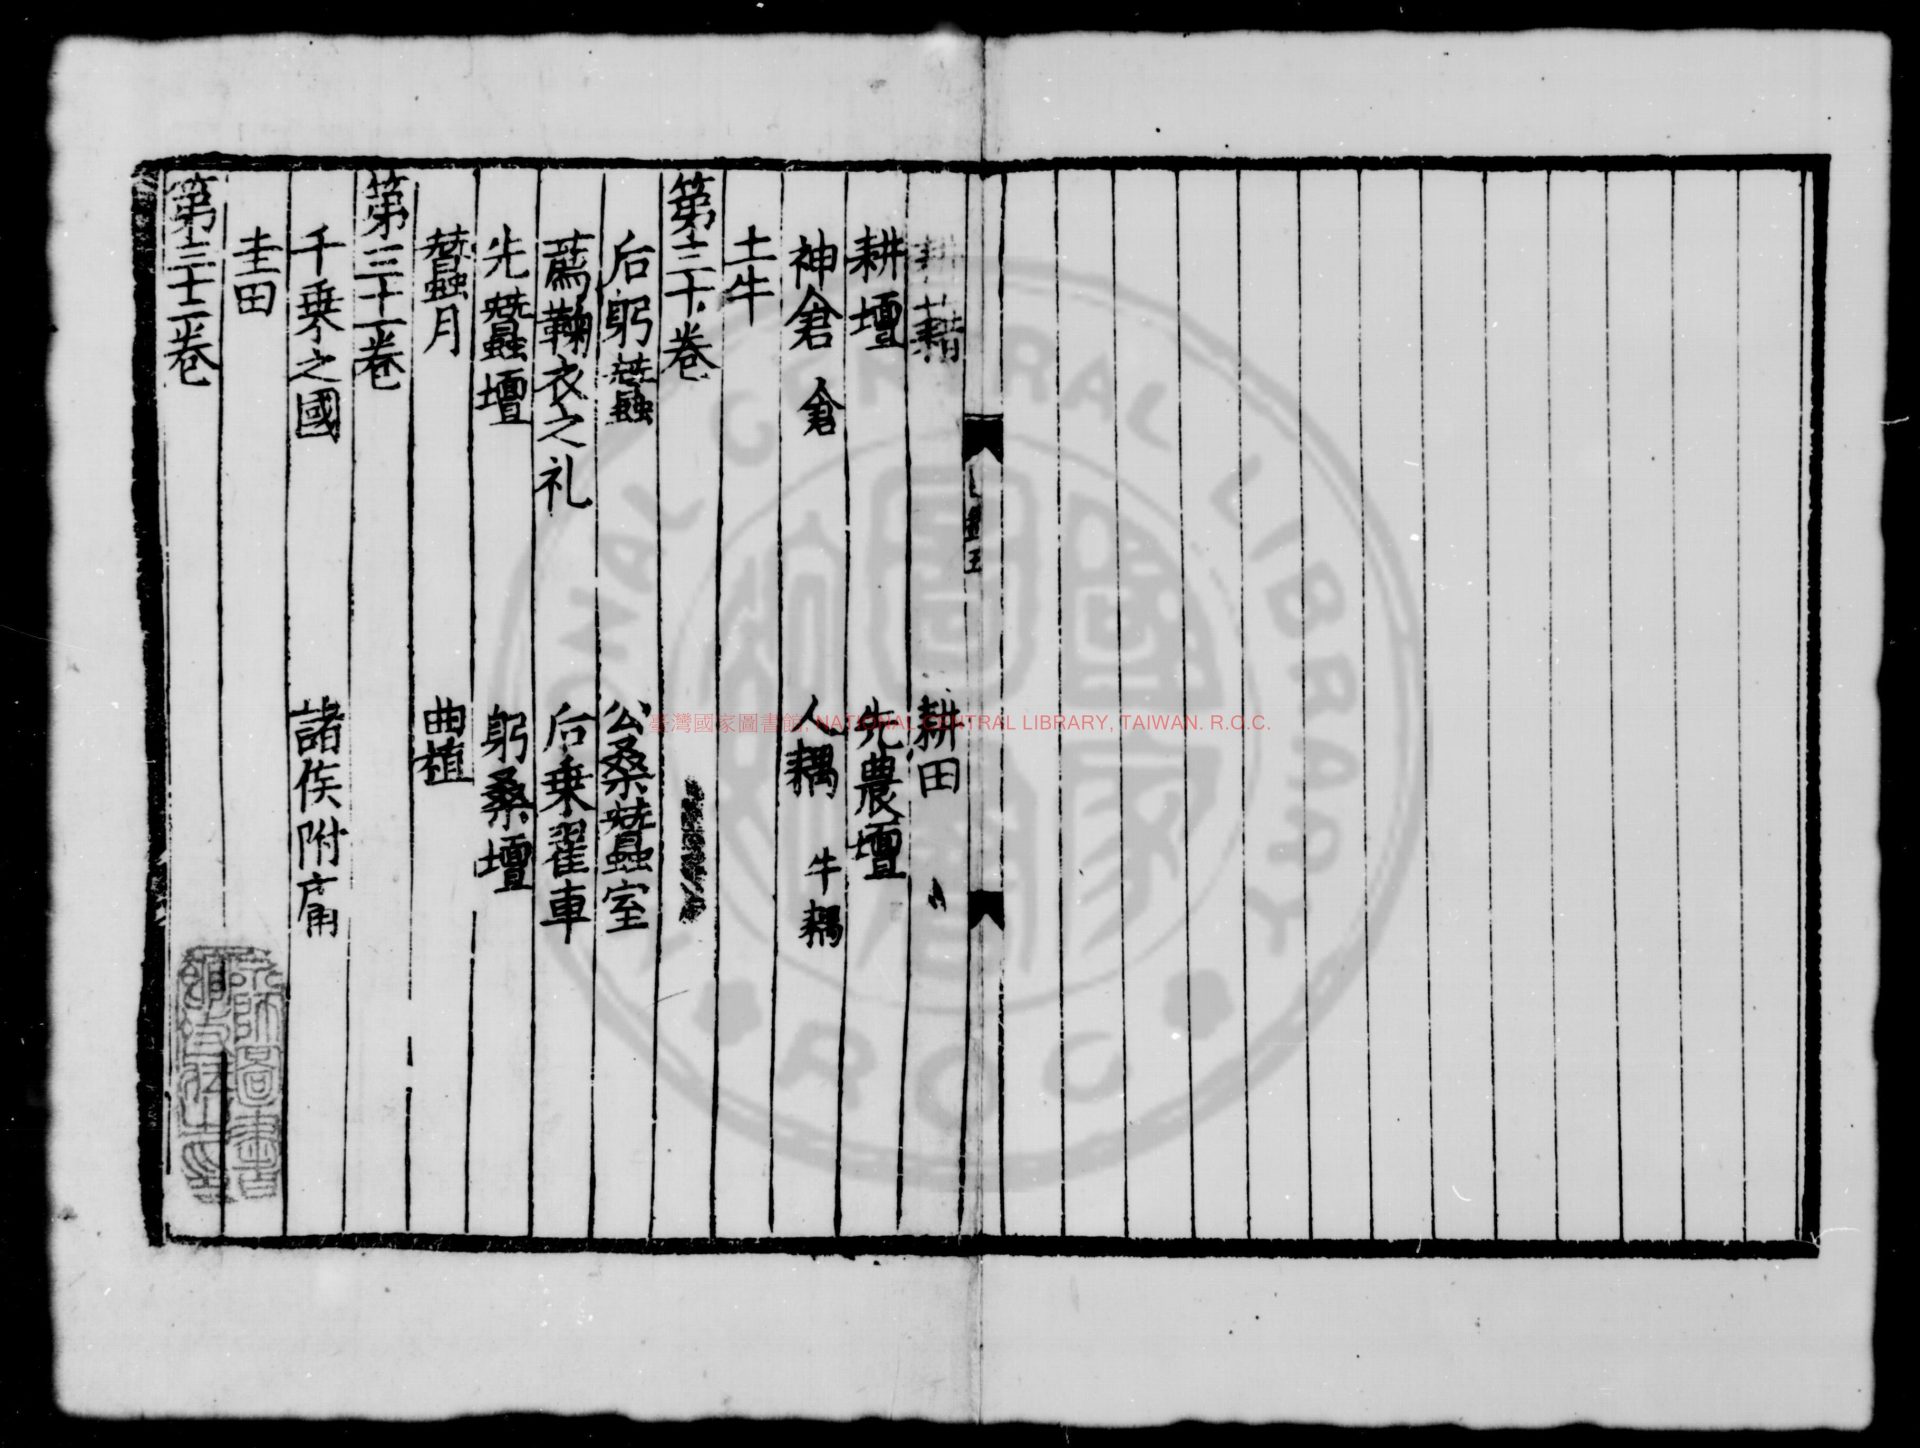 耕藉　耕田
耕壇　先農壇
神倉　倉人耦　牛耦
土牛
第三十卷
后躬蠶　公桑蠶室
薦鞠衣之礼　后乗翟車
先蠶壇　躬桑壇
蠶月　曲植
第三十一卷
千乗之國　諸侯附庸
圭田
第三十二卷
臺灣國家圖書館, NATIONAL CENTRAL LIBRARY, TAIWAN. R.O.C.
NATIONAL CENTRAL LIBRARY
R O C